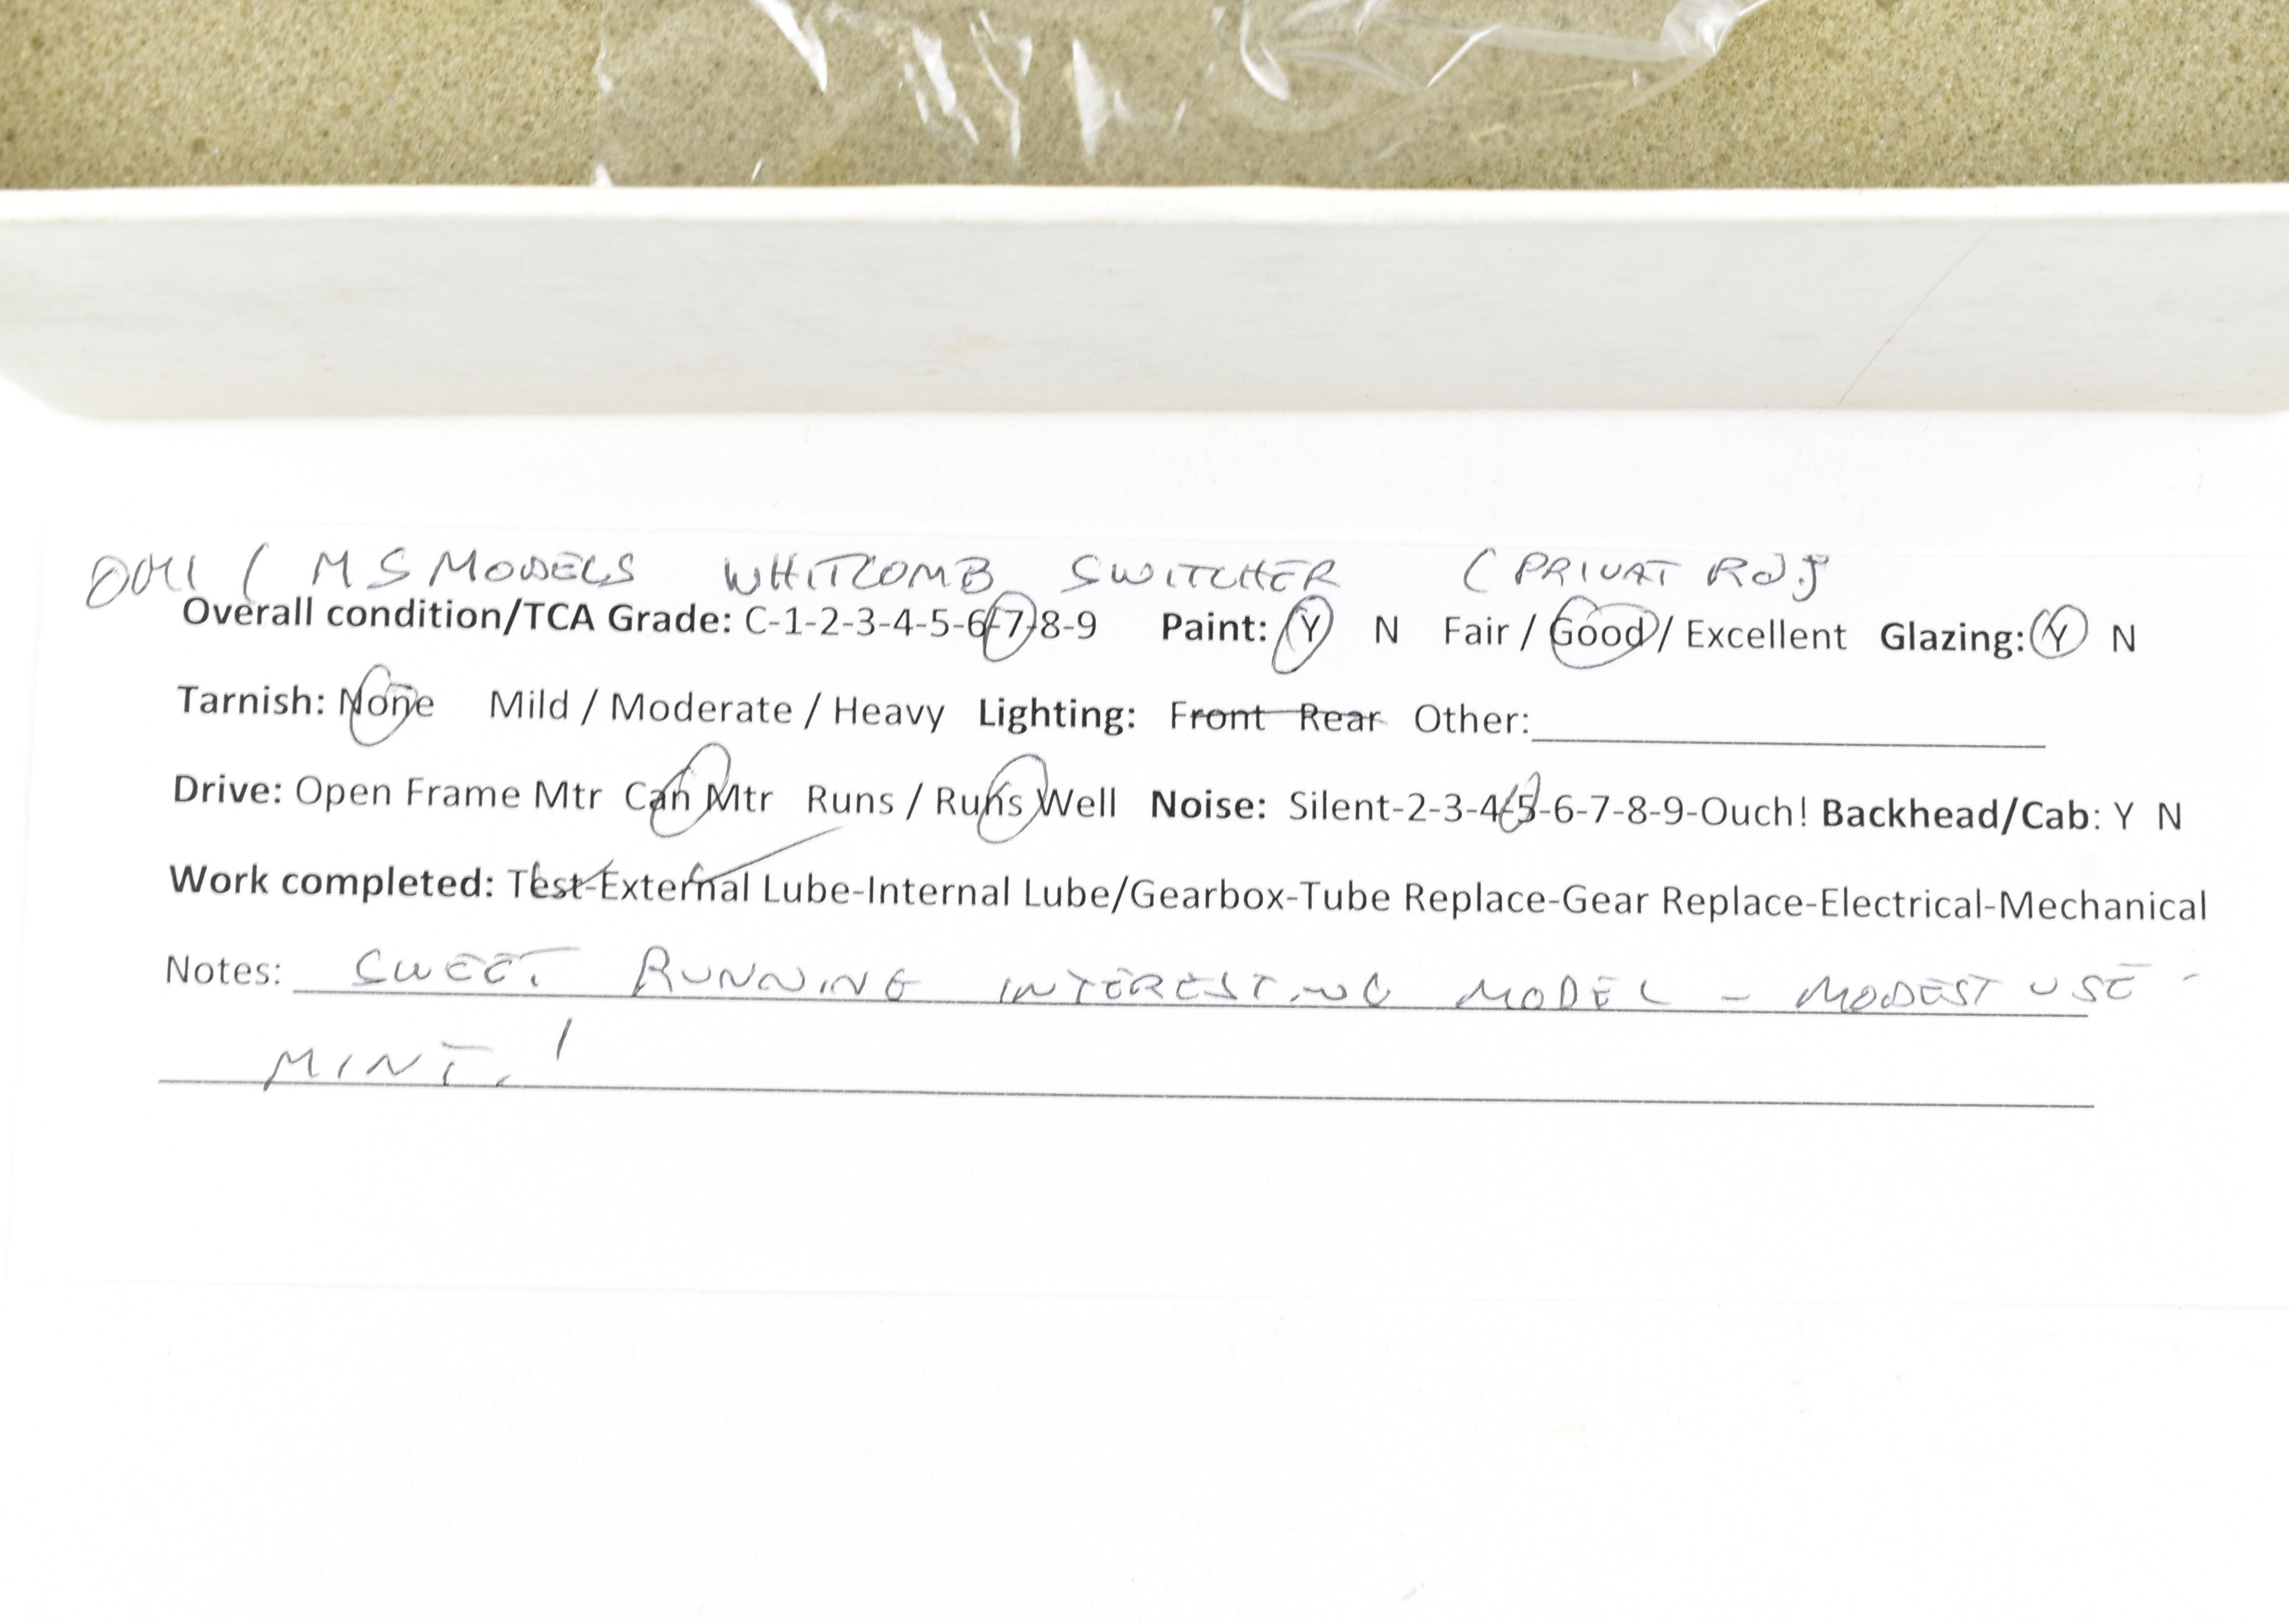 OMI / MS MODELS WHITCOMB SWITCHER (PRIVAT RD)
Overall condition/TCA Grade: C-1-2-3-4-5-6-7-8-9 Paint: Y N Fair / Good / Excellent Glazing: Y N
Tarnish: None Mild / Moderate / Heavy Lighting: Front Rear Other:
Drive: Open Frame Mtr Can Mtr Runs / Runs Well Noise: Silent-2-3-4-5-6-7-8-9-Ouch! Backhead/Cab: Y N
Work completed: Test-External Lube-Internal Lube/Gearbox-Tube Replace-Gear Replace-Electrical-Mechanical
Notes: SWEET RUNNING INTERESTING MODEL - MODEST USE -
MINT. !